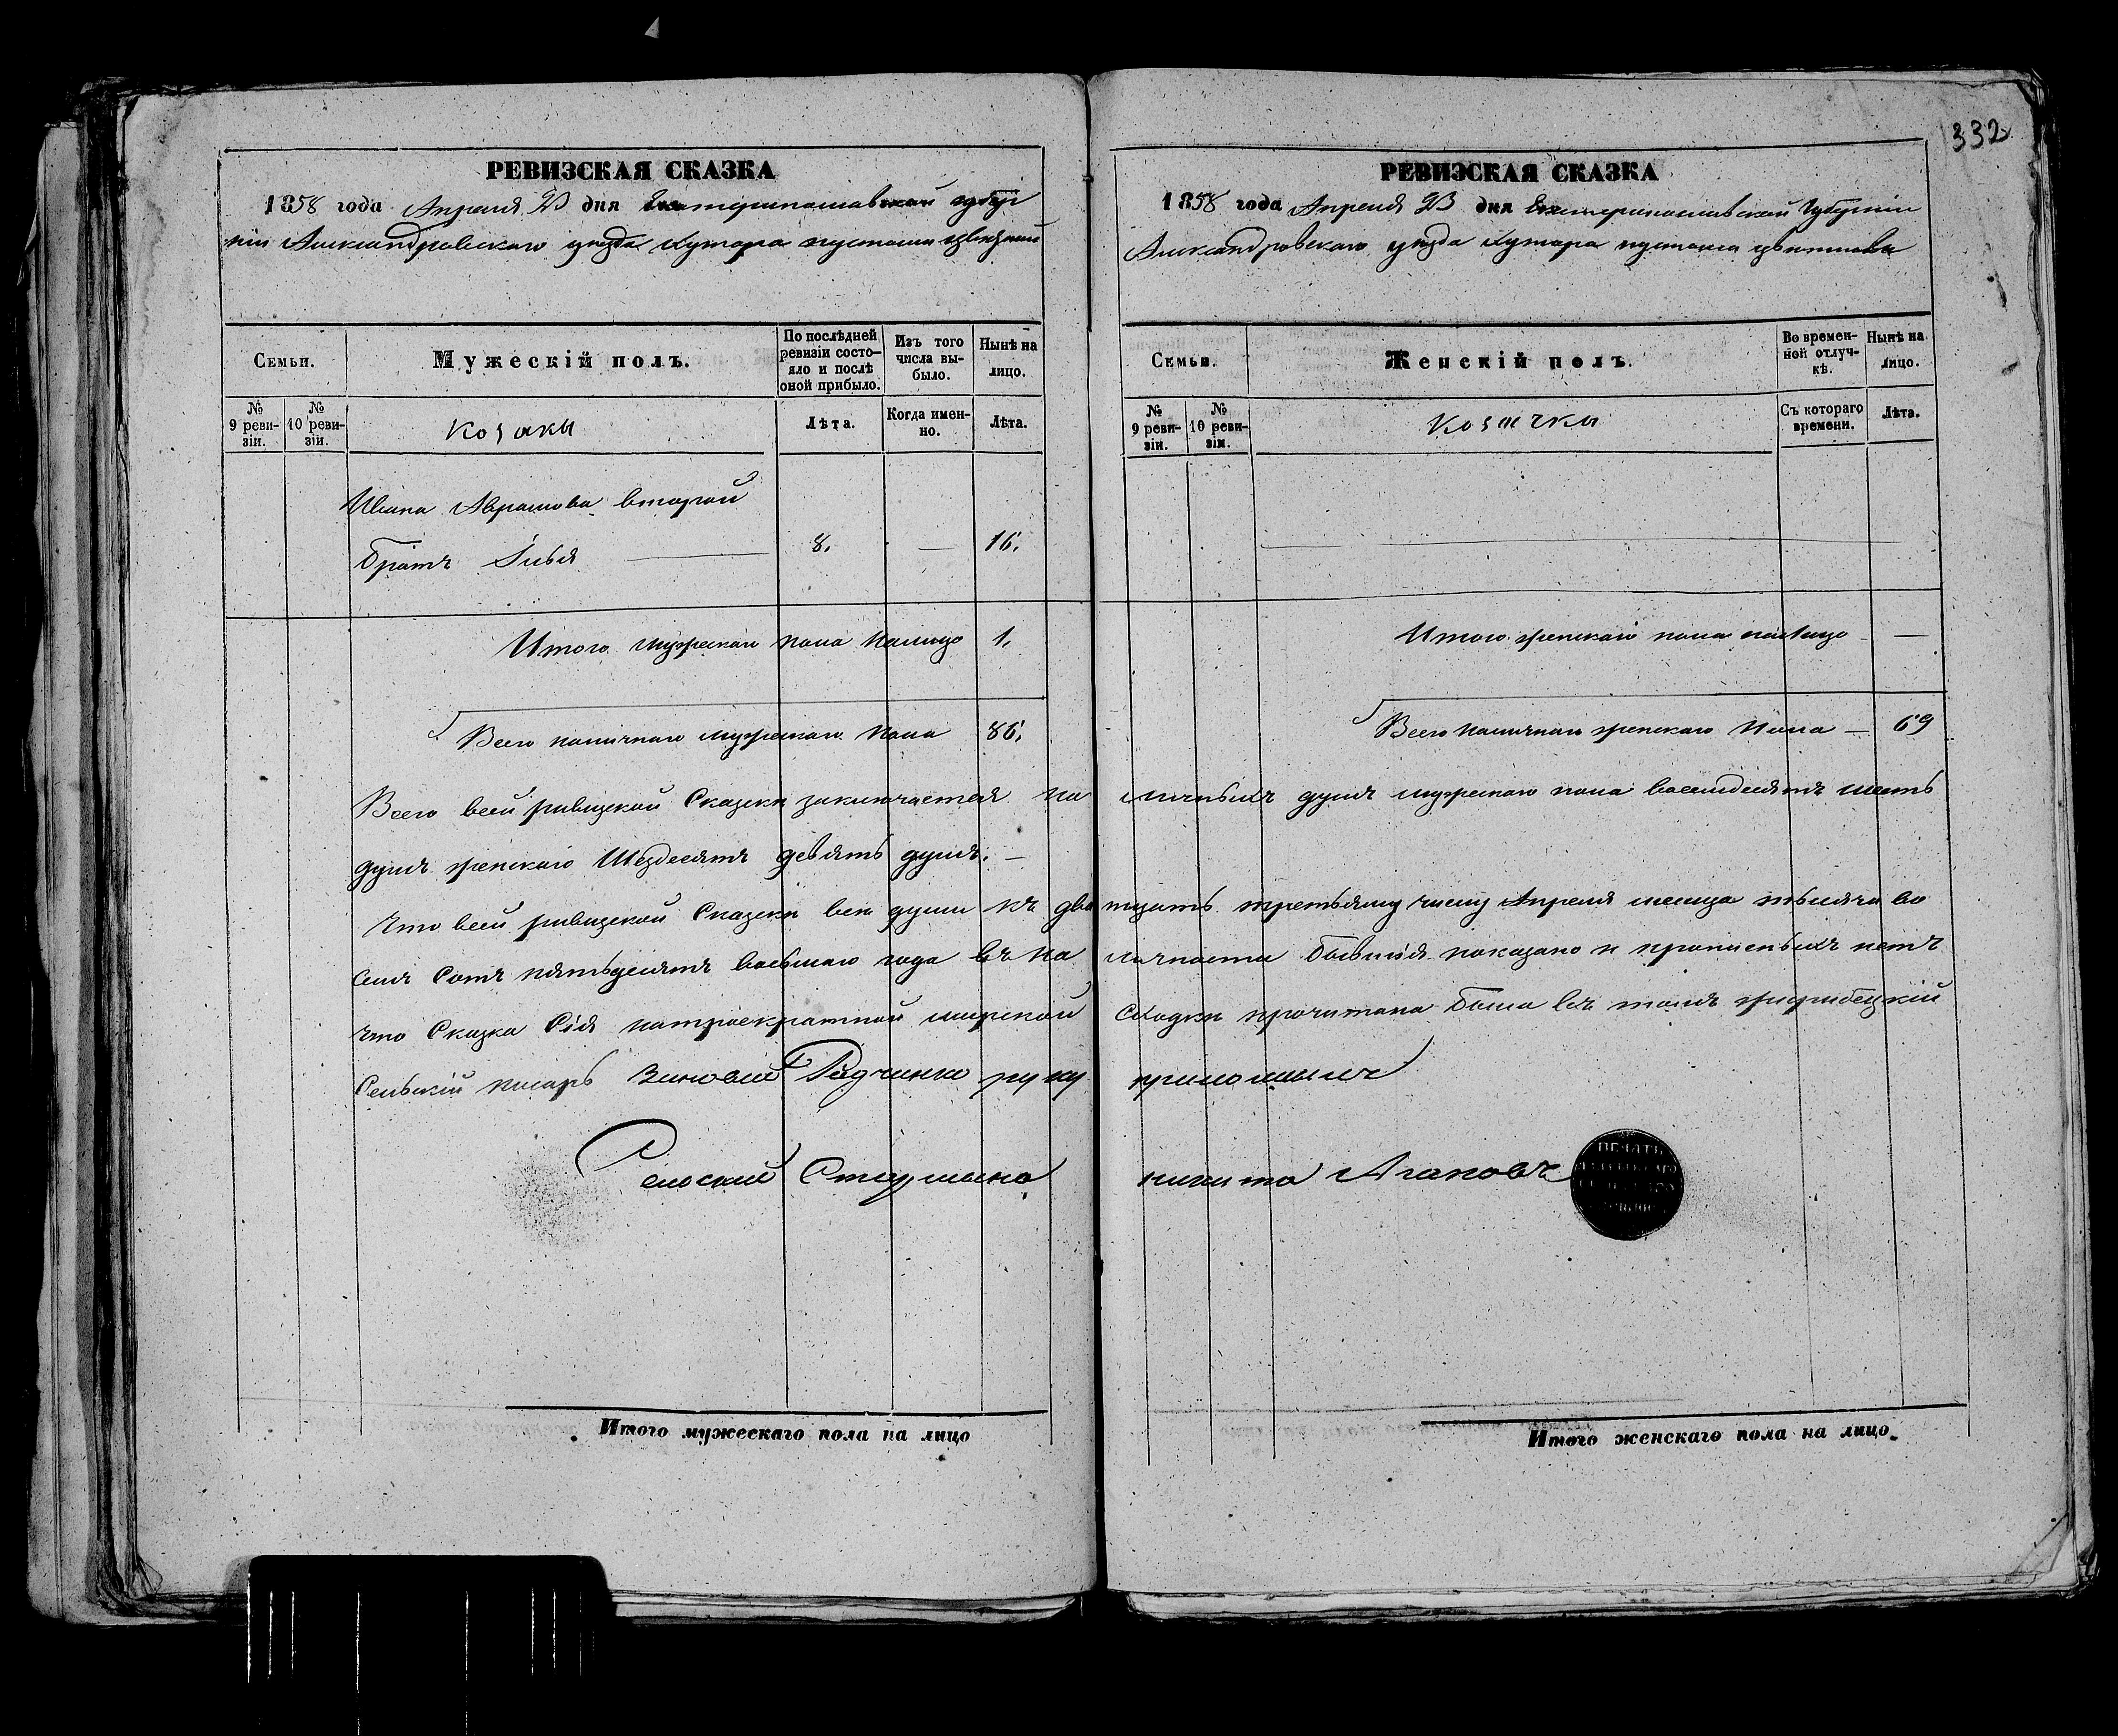 332
РЕВИЗСКАЯ СКАЗКА
1858 года Апреля 23 дня Екатеринославской губер
ніи Александровскаго уезда хутора
Семьи.
Мужескій полъ.
По послѣдней ревизіи состо-яло и послѣ оной прибыло.
Изъ того числа вы-было.
Нынѣ на лицо.
№ 9 реви-зіи.
№ 10 реви-зіи.
Козаки
Лѣта.
Когда имен-но.
Лѣта.
Ивана Аврамова второй
братъ Илья — 8. — 16.
Итого мужескаго пола налицо 1.
Всего наличнаго мужескаго пола 86.
РЕВИЗСКАЯ СКАЗКА
1858 года Апреля 23 дня Екатеринославской Губерніи
Александровскаго уезда хутора
Семьи.
Женскій полъ.
Во времен-ной отлуч-кѣ.
Нынѣ на лицо.
№ 9 реви-зіи.
№ 10 реви-зіи.
Козачки
Съ котораго времени.
Лѣта.
—
Итого женскаго пола налицо —
Всего наличнаго женскаго пола — 69
Всего всей ривизской Сказки заключается на личныхъ душъ мужескаго пола восемдесятъ шесть
душъ женскаго Шездесятъ девять душъ. —
Что всей ривизской Сказки все души къ двацать третьяму числу Апреля месяца тысяча во
семъ Сотъ пятьдесятъ восьмаго года въ на личности показано и прописныхъ нетъ
что Сказка Сія натроекратной мирской сходки прочитана была въ томъ
Сельскій писарь Зиновий руку приложилъ
Селский Старшина никита Агаповъ
ПЕЧАТЬ
Итого мужескаго пола на лицо
Итого женскаго пола на лицо.